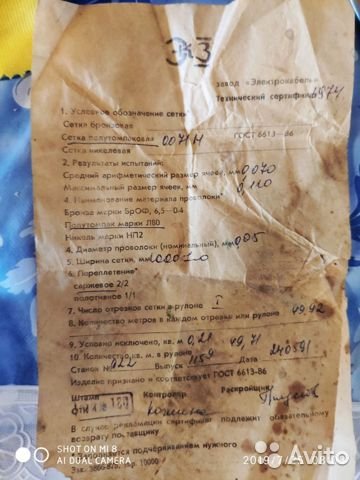 ЭКЗ
завод «Электрокабель»
Технический сертификат 4974
1. Условное обозначение сетки
Сетка бронзовая
Сетка полутомпаковая 0071Н ГОСТ 6613—86
Сетка никелевая
2. Результаты испытаний:
Средний арифметический размер ячеек, мм 0,070
Максимальный размер ячеек, мм 0,110
4. Наименование материала проволоки
Бронза марки БрОФ, 6,5—0,4
Полутомпак марки Л80
Николь марки НП2
4. Диаметр проволоки (номинальный), мм 0,05
5. Ширина сетки, мм
6. Переплетение
саржевое 2/2
полотняное 1/1
7. Число отрезков сетки в рулоне I
8. Количество метров в каждом отрезке или рулоне 49,92
9. Условно исключено, кв. м 0,21
10. Количество кв. м. в рулоне 49,71
Станок № 922 Выпуск 1159 Дата 240591
Изделие признано и соответствует ГОСТ 6613-86
Штамп Контролер Раскройщик
ОТК 189
В случае рекламации сертификат подлежит обязательному
возврату поставщику
подчеркиванием нужного
Зак. 10000
SHOT ON MI 8
AI DUAL CAMERA
Avito